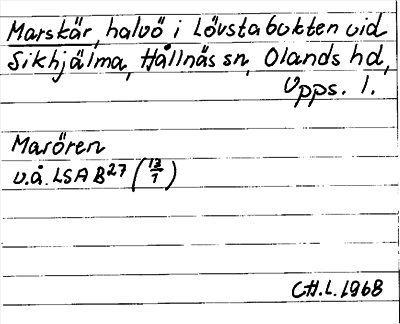 Marskär, halvö i Lövstabukten vid
Sikhjälma, Hållnäs sn, Olands hd,
Upps. l.
Marören
u.å. LSA B27 (13/1)
CH.L.1968